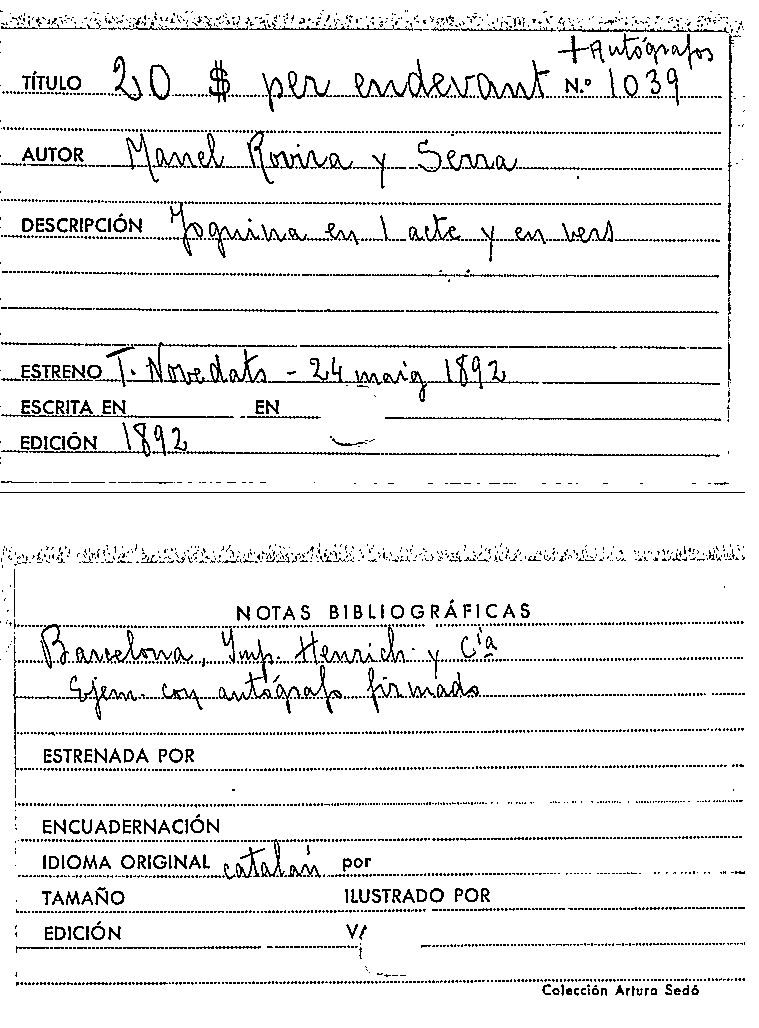 + Autógrafos
TÍTULO 20 $ per endevant N.º 1039
AUTOR Manel Rovira y Serra
DESCRIPCIÓN Joguina en 1 acte y en vers
ESTRENO T. Novedats - 24 maig 1892
ESCRITA EN EN
EDICIÓN 1892
NOTAS BIBLIOGRÁFICAS
Barcelona, Imp. Henrich y Cía
Ejem. con autógrafo firmado
ESTRENADA POR
ENCUADERNACIÓN
IDIOMA ORIGINAL catalán por
TAMAÑO ILUSTRADO POR
EDICIÓN
Colección Arturo Sedó